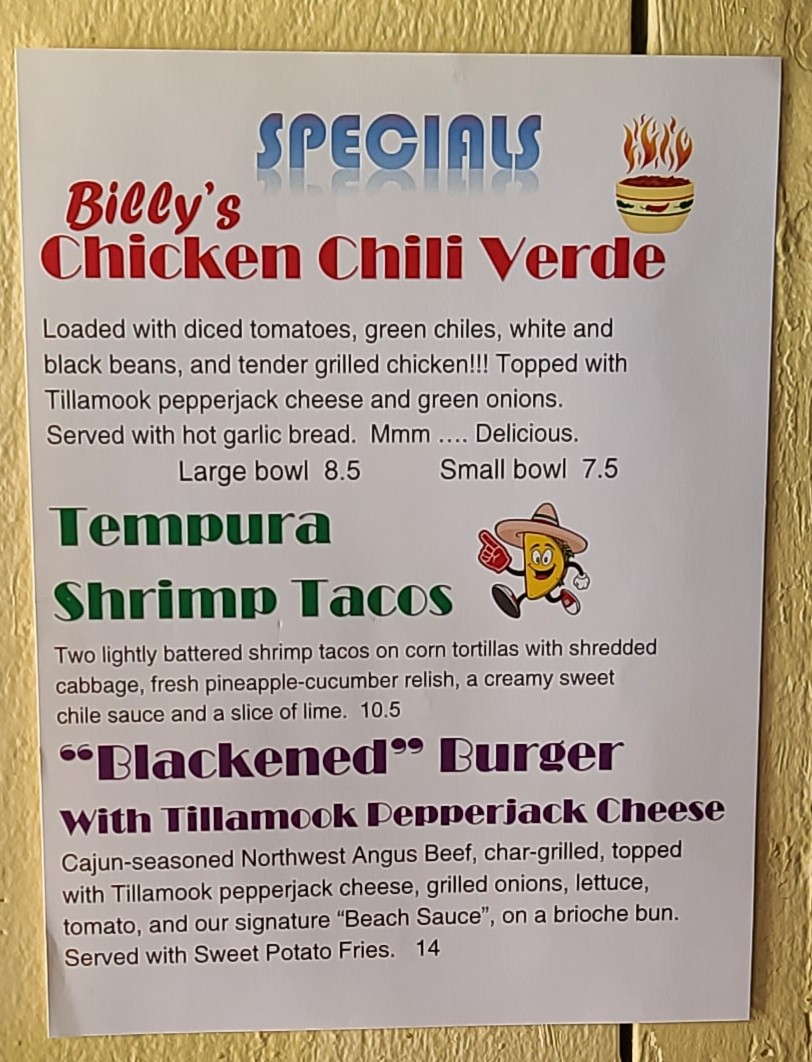 SPECIALS
Billy's
Chicken Chili Verde
Loaded with diced tomatoes, green chiles, white and
black beans, and tender grilled chicken!!! Topped with
Tillamook pepperjack cheese and green onions.
Served with hot garlic bread.  Mmm .... Delicious.
Large bowl  8.5          Small bowl  7.5
Tempura
Shrimp Tacos
Two lightly battered shrimp tacos on corn tortillas with shredded
cabbage, fresh pineapple-cucumber relish, a creamy sweet
chile sauce and a slice of lime.  10.5
“Blackened” Burger
With Tillamook Pepperjack Cheese
Cajun-seasoned Northwest Angus Beef, char-grilled, topped
with Tillamook pepperjack cheese, grilled onions, lettuce,
tomato, and our signature “Beach Sauce”, on a brioche bun.
Served with Sweet Potato Fries.   14